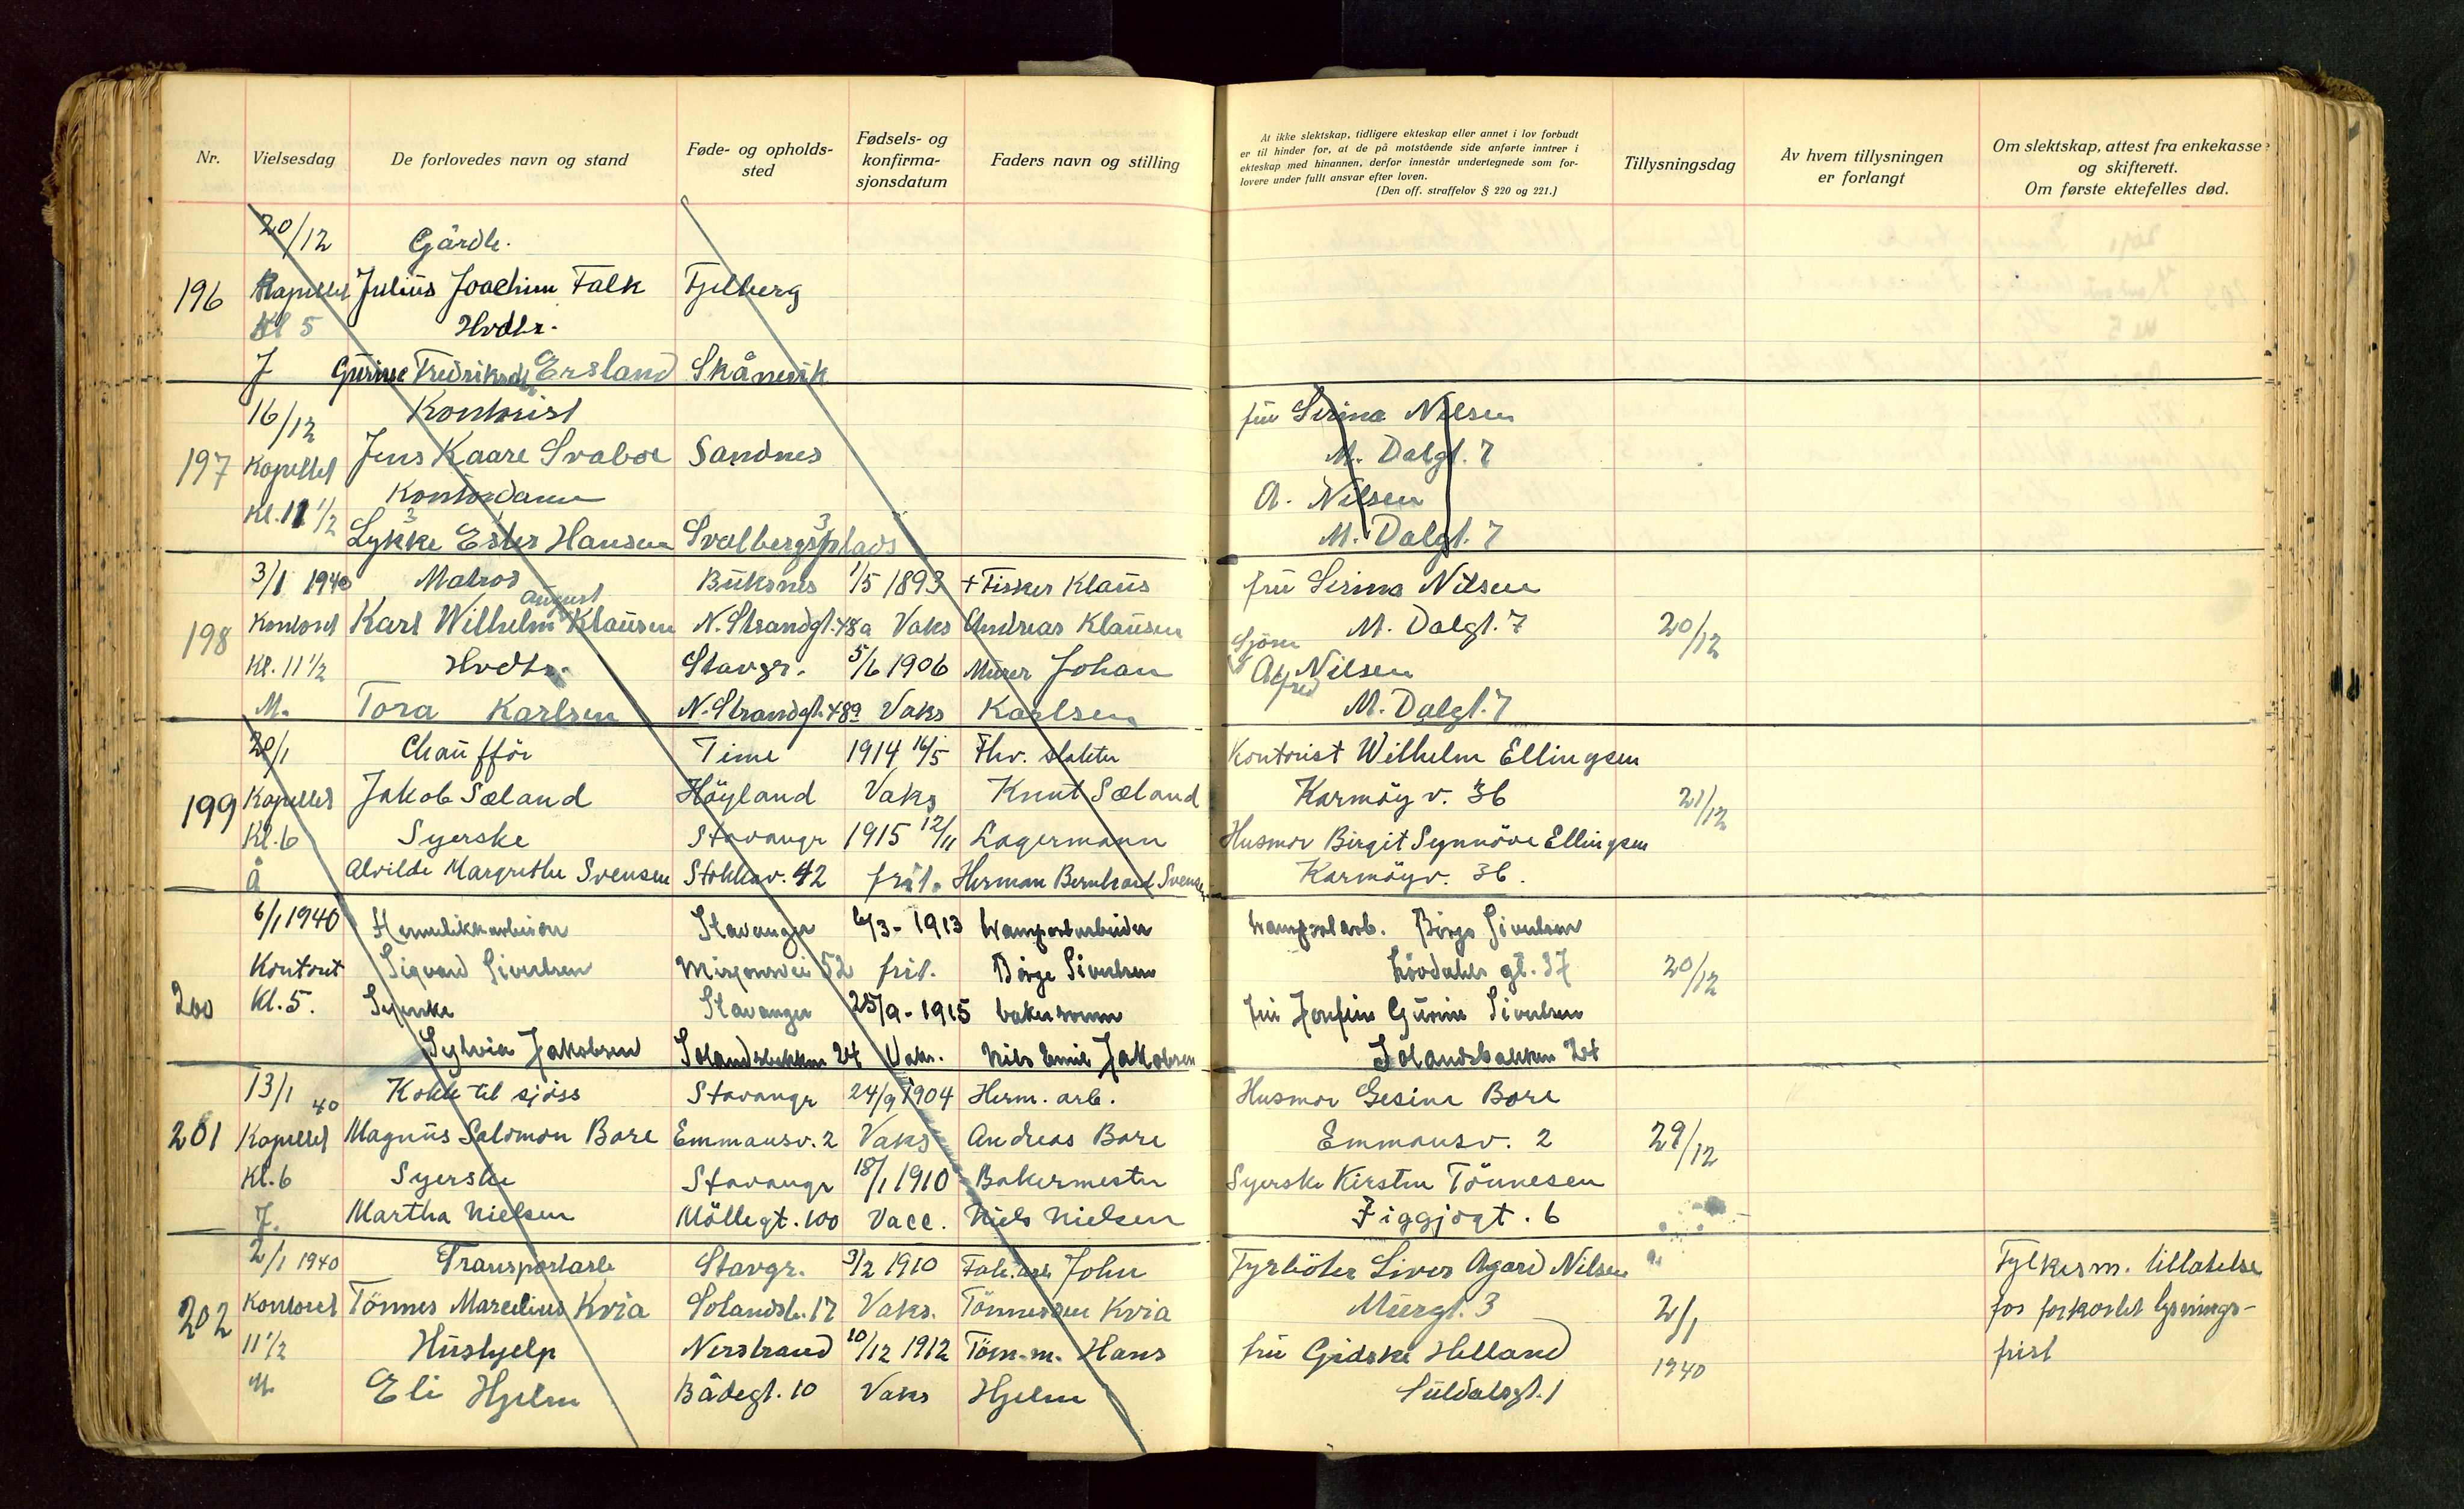 Nr.
Vielsesdag
De forlovedes navn og stand
Føde- og opholds-
sted
Fødsels- og
konfirma-
sjonsdatum
Faders navn og stilling
At ikke slektskap, tidligere ekteskap eller annet i lov forbudt
er til hinder for, at de på motstående side anførte inntrer i
ekteskap med hinannen, derfor innestår undertegnede som for-
lovere under fullt ansvar efter loven.
(Den off. straffelov § 220 og 221.)
Tillysningsdag
Av hvem tillysningen
er forlangt
Om slektskap, attest fra enkekasse
og skifterett.
Om første ektefelles død.
20/12 Gårdb.
196 Kapellet Julius Joachim Falk Fjelberg
Kl 5 Hvdtr.
J Gurine Fredriksdtr Ersland Skånevik
16/12 Kontorist fru Serina Nilsen
197 Kapellet Jens Kaare Svaboe Sandnes M. Dalgt. 7
Kl. 11 1/2 Kontordame A. Nilsen
Lykke Ester Hansen Svalbergsplads 3 M. Dalgt. 7
3/1 1940 Matros Buksnes 1/5 1893 + Fisker Klaus fru Serina Nilsen
198 Kontoret Karl Wilhelm august Klausen N. Strandgt. 48a Vaks Andreas Klausen M. Dalgt. 7 20/12
Kl. 11 1/2 Hvdtr. Stavgr. 5/6 1906 Murer Johan Sjøm Alfred Nilsen
M. Tora Karlsen N. Strandgt. 48a Vaks Karlsen M. Dalgt. 7
20/1 Chaufför Time 1914 16/5 Fhv. slakter Kontorist Wilhelm Ellingsen
199 Kapellet Jakob Sæland Höyland Vaks Knut Sæland Karmöy v. 36 21/12
Kl. 6 Syerske Stavangr 1915 12/11 Lagermann Husmor Birgit Synnöve Ellingsen
Å Alvilde Margrethe Svensen Stokkav. 42 frit. Herman Bernhard Svensen Karmöyv. 36.
6/1 1940 Hermetikkarbeider Stavanger 6/3 - 1913 transportarbeider transportarb. Börge Sivertsen
Kontoret Sigvard Sivertsen Misjonsvei 52 frit. Börge Sivertsen Lövdahls gt. 37 20/12
200 Kl. 5. Syerske Stavanger 25/9 - 1915 bakersvenn fru Josefine Gurine Sivertsen
Sylvia Jakobsen Solandsbakken 24 Vaks. Nils Emil Jakobsen Solandsbakken 24
13/1 40 Kokk til sjöss Stavangr 24/9 1904 Herm. arb. Husmor Gesine Bore
201 Kapellet Magnus Salomon Bore Emmausv. 2 Vaks Andreas Bore Emmausv. 2 29/12
Kl. 6 Syerske Stavangr 18/1 1910 Bakermester Syerske Kirsten Tönnesen
J. Martha Nielsen Möllegt. 100 Vacc. Niels Nielsen Figgjogt. 6
2/1 1940 Transportarb Stavgr. 3/2 1910 Fab. arb John Fyrböter Siver Agard Nilsen Fylkesm. tillatelse
202 Kontoret Tönnes Marcelius Kvia Solandsb. 17 Vaks. Tönnessen Kvia Murgt. 3 2/1 for forkortet lysnings-
11 1/2 Hushjelp Nerstrand 10/12 1912 Töm. m. Hans fru Gidske Helland 1940 frist
M Eli Hjelm Bådegt. 10 Vaks Hjelm Suldalsgt. 1